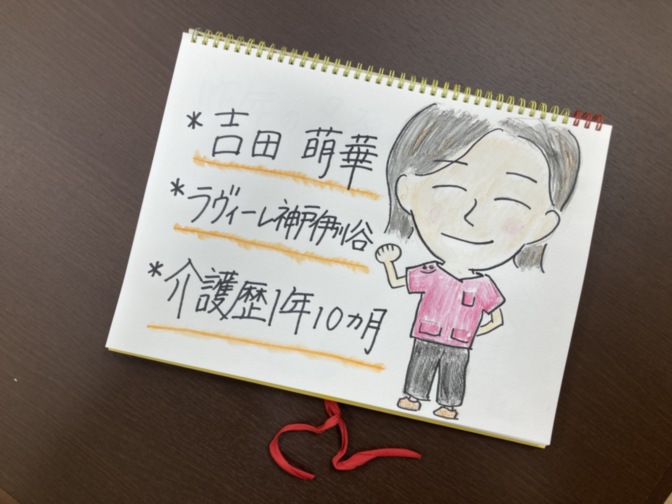 *吉田 萌華
*ラヴィーレ神戸伊川谷
*介護歴1年10ヵ月